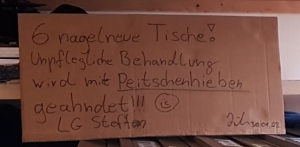 6 nagelneue Tische!
Unpflegliche Behandlung
wird mit Peitschenhieben
geahndet!!!
LG Steffen